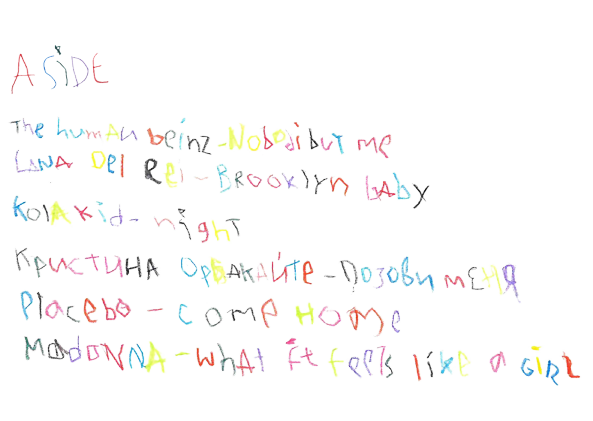 A SiDE
The human beinz - Nobodi but me
LANA Del Rei - Brooklyn baby
Kola kid - night
Кристина Орбакайте - Позови меня
Placebo - come HOme
Madonna - what it feels like a GiRL